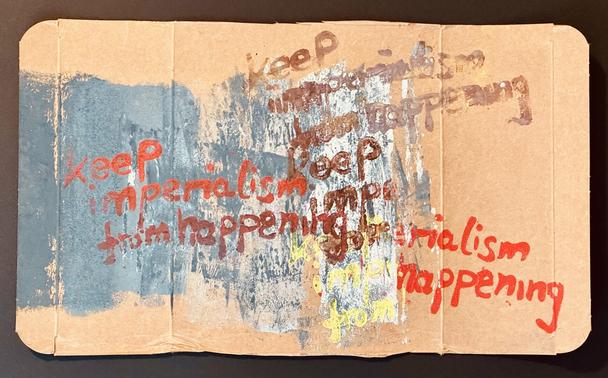 keep
imperialism
from happening
keep
imperialism
from happening
keep
impe
imperialism
from happening